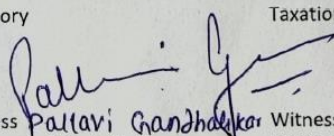 ory Taxatio
ss Pallavi Gandhalikar Witness